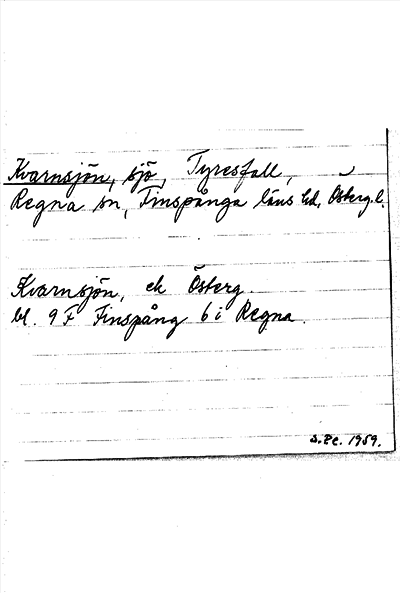 Kvarnsjön, sjö, Tyresfall,
Regna sn, Finspånga läns hd, Österg. l.
Kvarnsjön, ek Österg.
bl. 9 F Finspång 6 i Regna.
1959.